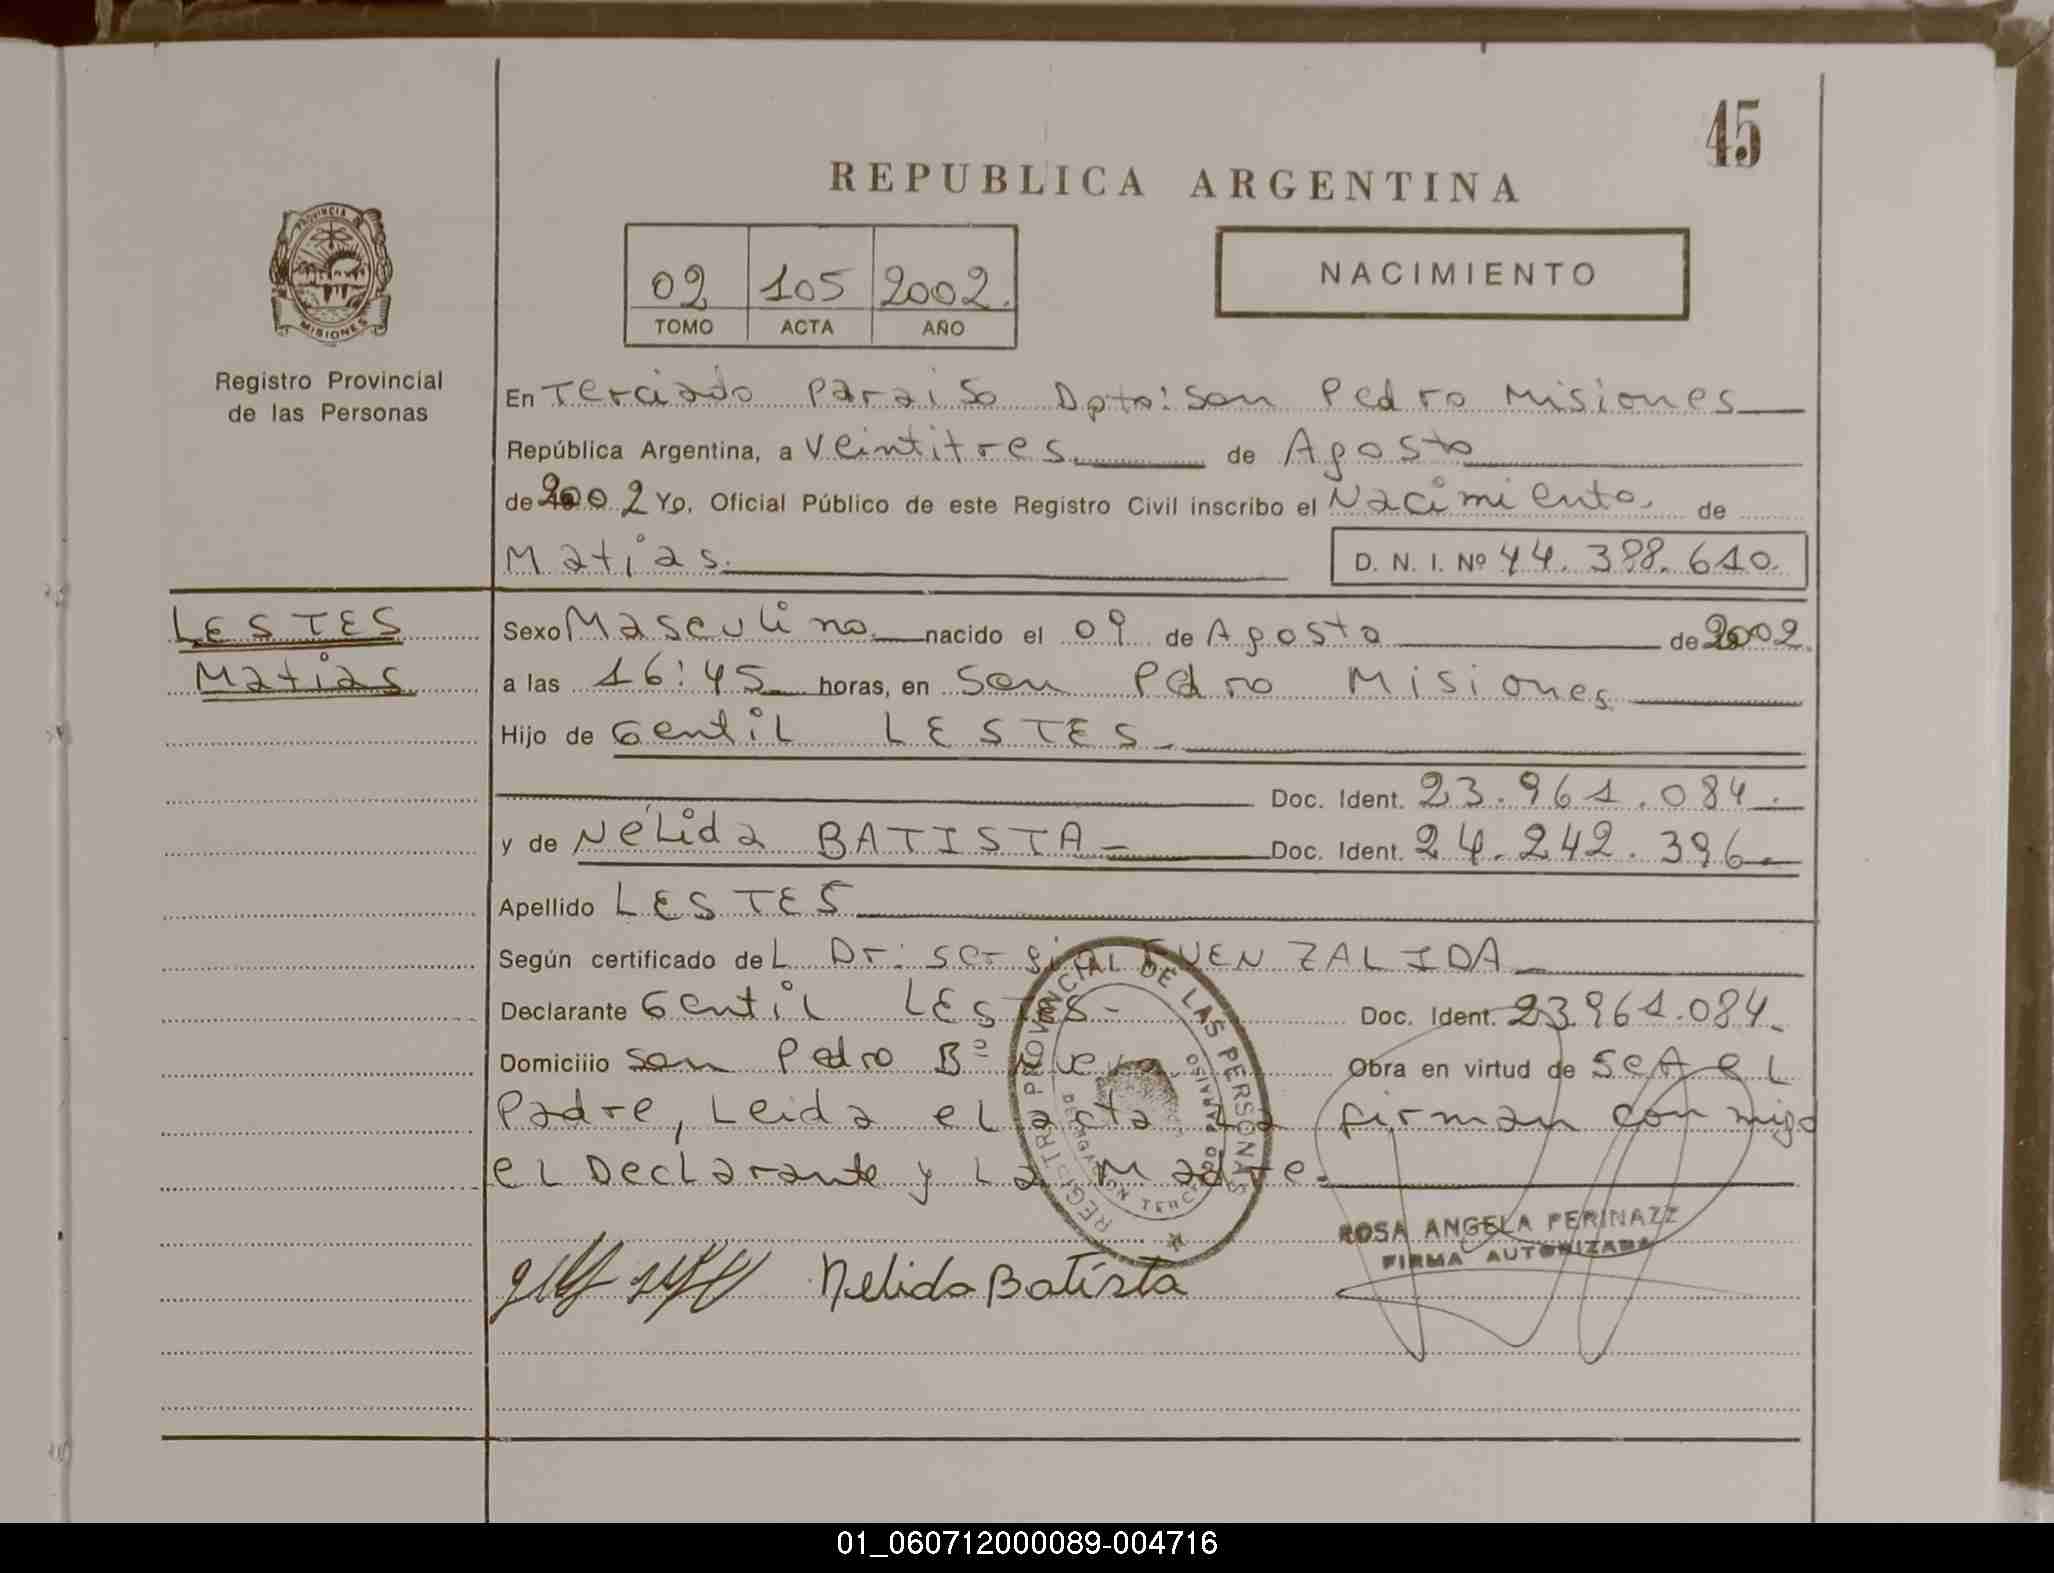 45
REPUBLICA ARGENTINA
PROVINCIA DE
MISIONES
02 105 2002.
TOMO ACTA AÑO
NACIMIENTO
Registro Provincial
de las Personas
En Terciado Paraiso Dpto: San Pedro Misiones
República Argentina, a Veintitres de Agosto
de 2002 Yo, Oficial Público de este Registro Civil inscribo el Nacimiento de
Matias. D. N. I. Nº 44.388.610.
LESTES
Matias
Sexo Masculino nacido el 09 de Agosto de 2002.
a las 16:45 horas, en San Pedro Misiones
Hijo de Gentil LESTES
Doc. Ident. 23.961.084.
y de Nélida BATISTA Doc. Ident. 24.242.396
Apellido LESTES
Según certificado del Dr: Sergio FUENZALIDA
Declarante Gentil LESTES- Doc. Ident. 23.961.084.
Domicilio San Pedro Bº Obra en virtud de SeA el
Padre, Leida el acta La firman conmigo
el Declarante y La Madre.
REGISTRO PROVINCIAL DE LAS PERSONAS
ROSA ANGELA PERINAZZ
FIRMA AUTORIZADA
Nelida Batista
01_060712000089-004716